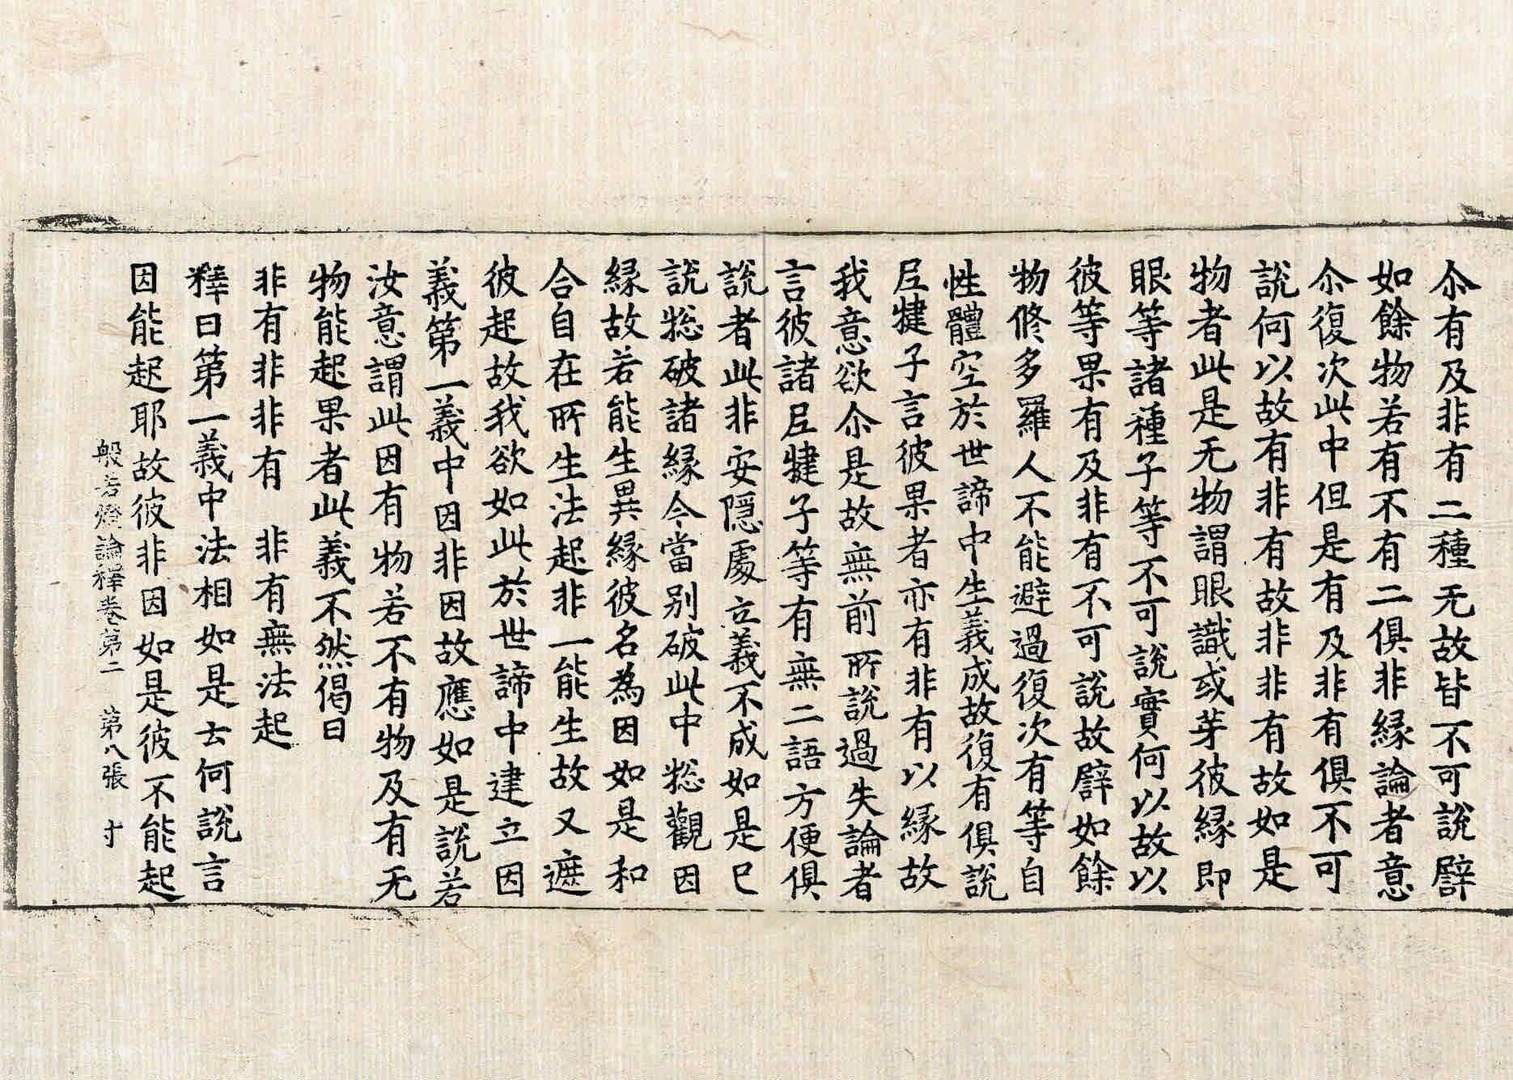 尒有及非有二種无故皆不可說譬
如餘物若有不有二俱非縁論者意
尒復次此中但是有及非有俱不可
說何以故有非有故非非有故如是
物者此是无物謂眼識或芽彼縁即
眼等諸種子等不可說實何以故以
彼等果有及非有不可說故譬如餘
物修多羅人不能避過復次有等自
性體空於世諦中生義成故復有俱說
尼犍子言彼果者亦有非有以縁故
我意欲尒是故無前所說過失論者
言彼諸尼犍子等有無二語方便俱
說者此非安隱處立義不成如是已
說惣破諸縁今當別破此中惣觀因
縁故若能生異縁彼名為因如是和
合自在所生法起非一能生故又遮
彼起故我欲如此於世諦中建立因
義第一義中因非因故應如是說若
汝意謂此因有物若不有物及有无
物能起果者此義不然偈曰
非有非非有　非有無法起
釋曰第一義中法相如是云何說言
因能起耶故彼非因如是彼不能起
般若燈論釋卷第二　第八張　寸